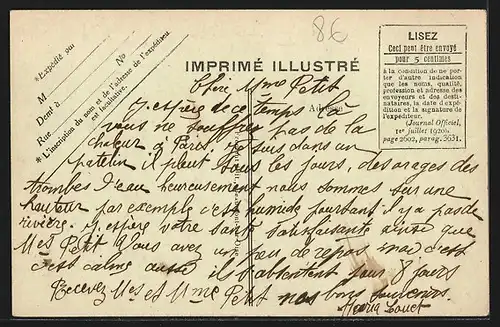 86
* Expédié par
M
Dem^t à
N^o
* L'inscription du nom et de l'adresse de l'expéditeur
est facultative.
IMPRIMÉ ILLUSTRÉ
Adresse
LISEZ
Ceci peut être envoyé
pour 5 centimes
à la condition de ne por-
ter d'autre indication
que les noms, qualité,
profession et adresse des
envoyeurs et des desti-
nataires, la date d'expé-
dition et la signature de
l'expéditeur.
(Journal Officiel,
1er juillet 1920).
page 2602, parag. 3631.
Chère Mme Petit
J'espère de ce temps là
vous ne souffrez pas de la
chaleur à Paris. Je suis dans un
patelin il pleut tous les jours, des orages des
trombes d'eau heureusement nous sommes sur une
hauteur par exemple c'est humide pourtant il n'y a pas de
rivière. J'espère votre santé satisfaisante ainsi que
Mr Petit Vous avez un peu de repos c'est
c'est calme aussi ils s'absentent pour 8 jours
Recevez Mr et Mme Petit nos bons souvenirs.
Maria Louet